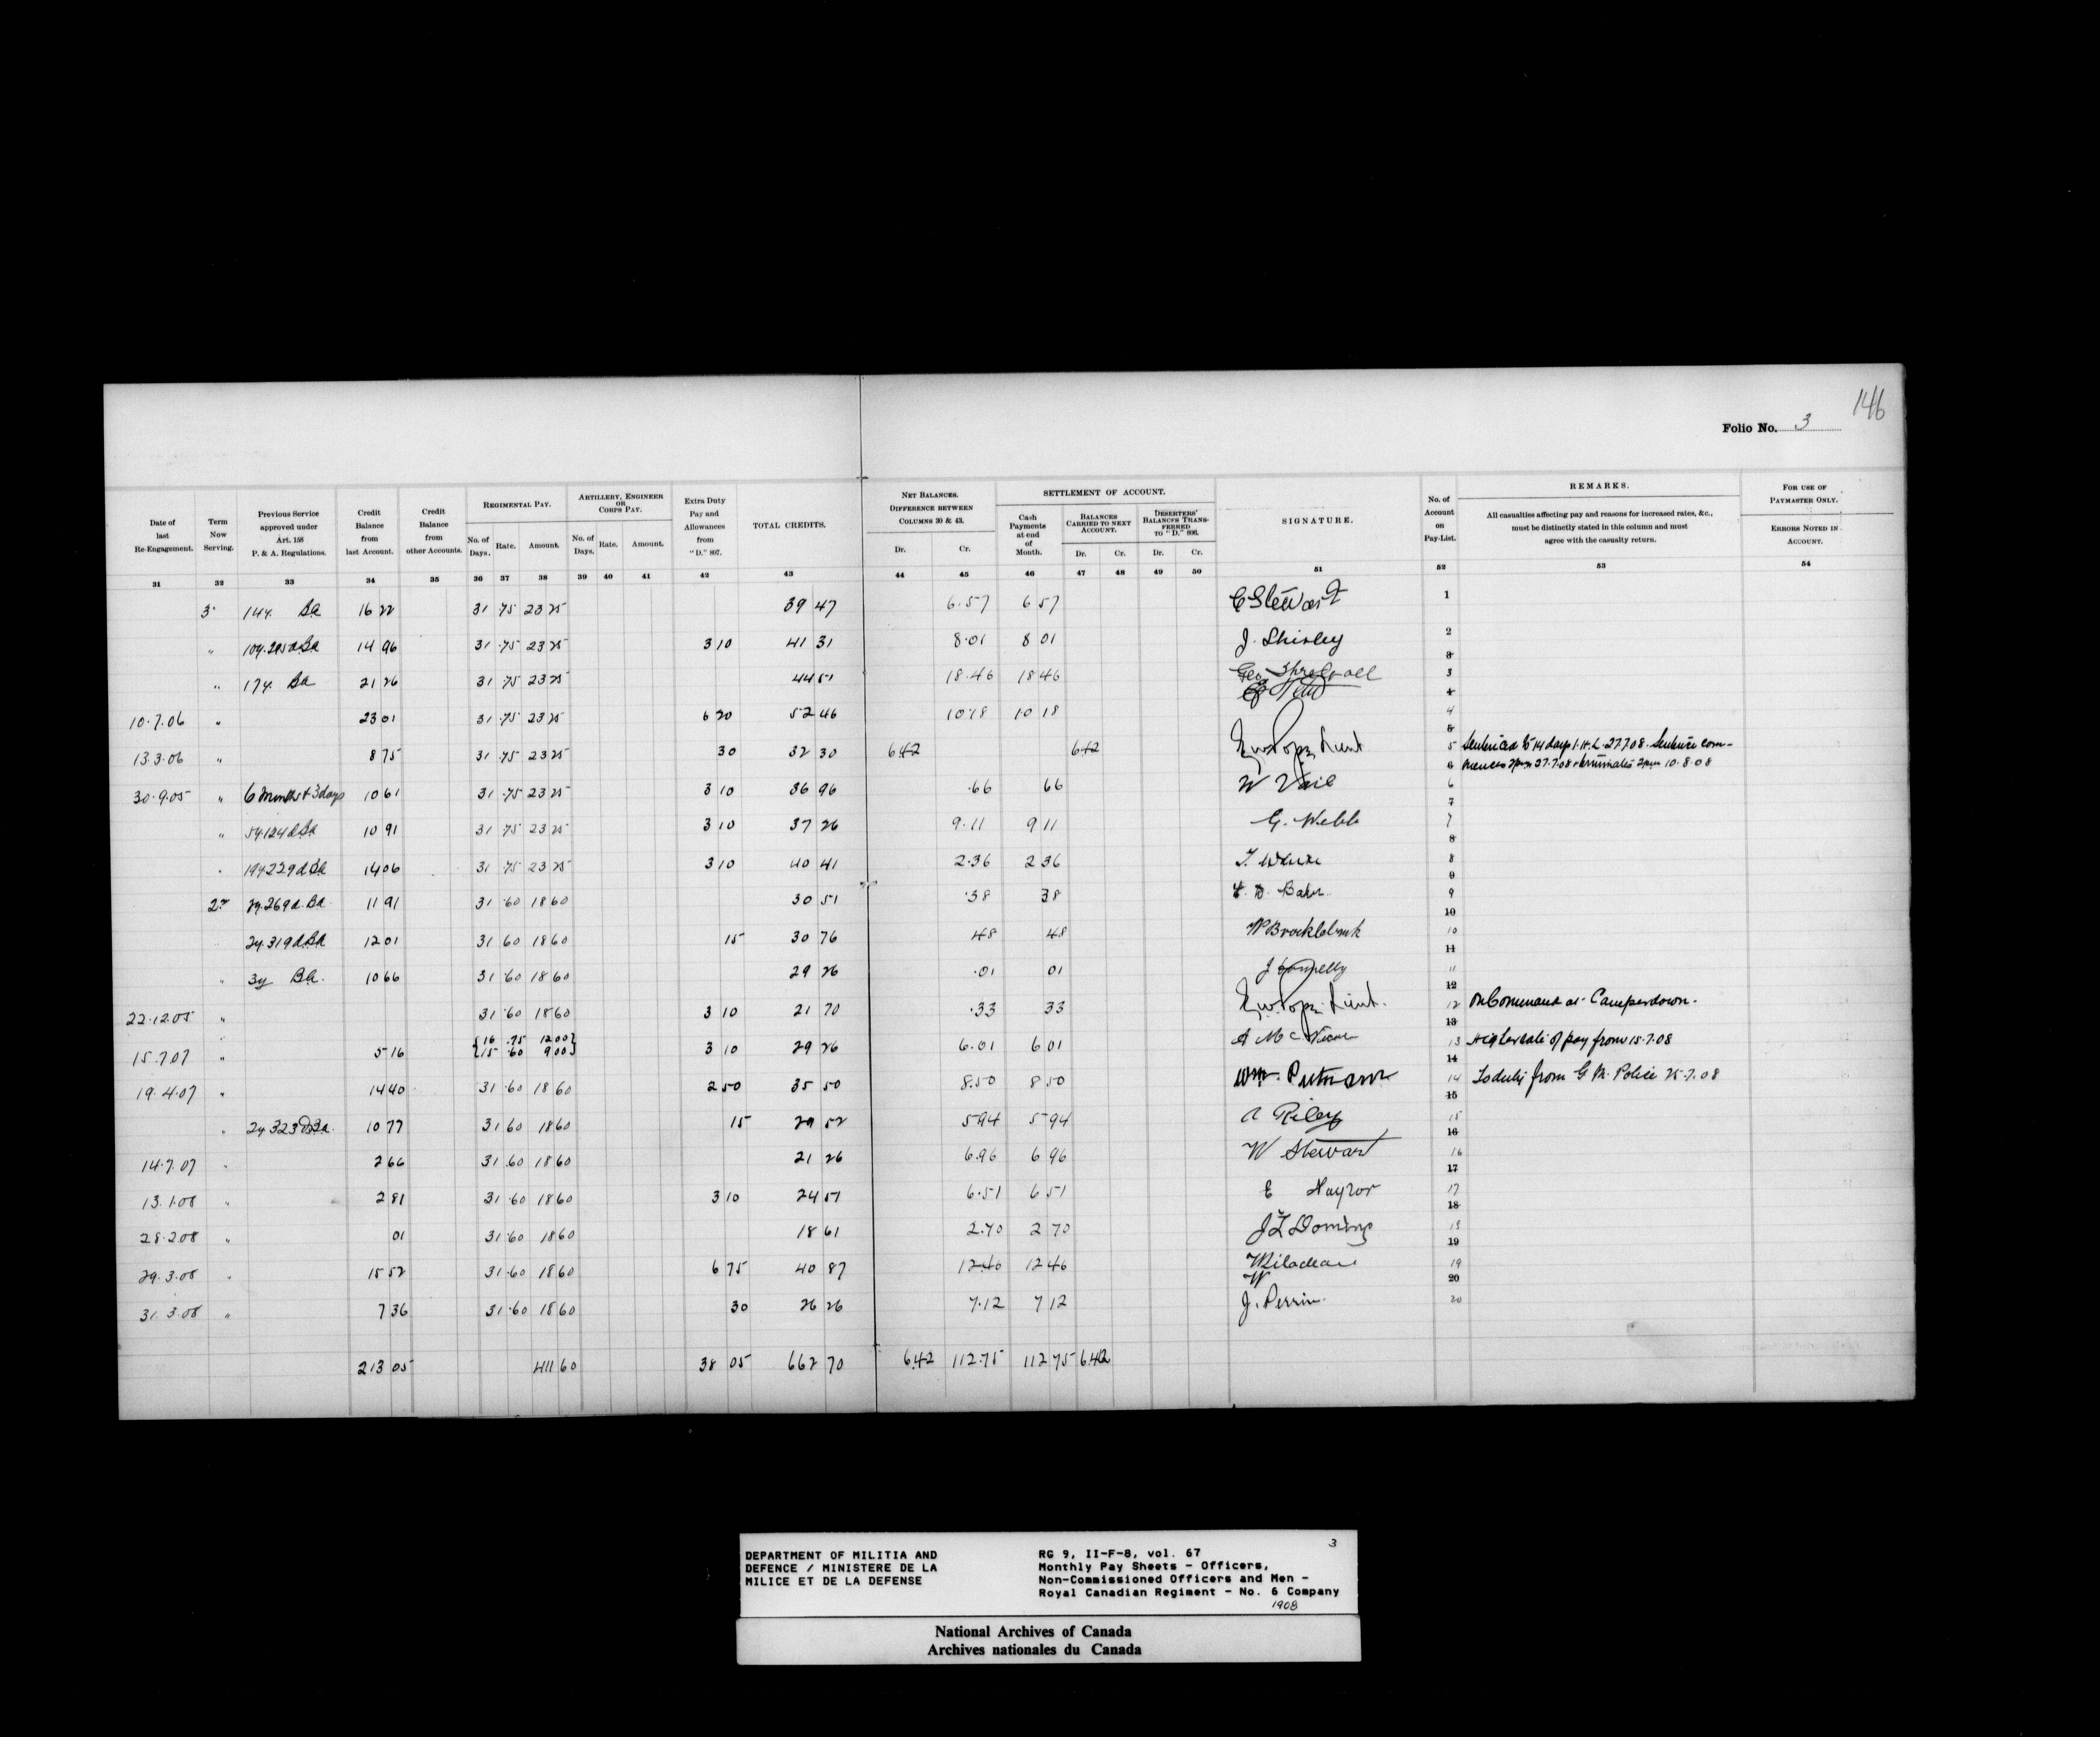 146
Folio No. 3
Date of last Re-Engagement. | Term Now Serving. | Previous Service approved under Art. 158 P. & A. Regulations. | Credit Balance from last Account. | Credit Balance from other Accounts. | REGIMENTAL PAY. No. of Days. Rate. Amount. | ARTILLERY, ENGINEER OR CORPS PAY. No. of Days. Rate. Amount. | Extra Duty Pay and Allowances from "D." 807. | TOTAL CREDITS. | NET BALANCES. DIFFERENCE BETWEEN COLUMNS 30 & 43. Dr. Cr. | SETTLEMENT OF ACCOUNT. Cash Payments at end of Month. BALANCES CARRIED TO NEXT ACCOUNT. Dr. Cr. DESERTERS' BALANCES TRANSFERRED TO "D." 806. Dr. Cr. | SIGNATURE. | No. of Account on Pay-List. | REMARKS. All casualties affecting pay and reasons for increased rates, &c., must be distinctly stated in this column and must agree with the casualty return. | FOR USE OF PAYMASTER ONLY. ERRORS NOTED IN ACCOUNT.
31 32 33 34 35 36 37 38 39 40 41 42 43 44 45 46 47 48 49 50 51 52 53 54
3" 144. Ba 16 22 31 75 23 25 39 47 6.57 6 57 C Stewart 1
" 14 96 31 .75 23 25 3 10 41 31 8.01 8 01 J. Shirley 2
" 174 Ba 21 26 31 75 23 25 44 51 18.46 18 46 3
10.7.06 " 23 01 31 .75 23 25 6 20 52 46 10.18 10 18 4
13.3.06 " 8 75 31 .75 23 25 30 32 30 6.42 6.42 Lieut 5 Sentenced to 14 days I.H.L. 27.7.08. Sentence com-
mences 2pm 27.7.08 terminates 2pm 10.8.08
30.9.05 " 6 months & 3 days 10 61 31 .75 23 25 3 10 36 96 .66 66 W Vail 6
" 10 91 31 .75 23 25 3 10 37 26 9.11 9 11 G. Webb 7
" 194 229 d Ba 14 06 31 75 23 25 3 10 40 41 2.36 2 36 8
2" 29.269 d. Ba 11 91 31 60 18 60 30 51 .38 38 9
24 319 d Ba 12 01 31 60 18 60 15 30 76 48 48 W Brocklebank 10
" 3y Ba. 10 66 31 .60 18 60 29 26 .01 01 J Connelly 11
22.12.05 " 31 .60 18 60 3 10 21 70 .33 33 Lieut. 12 On Command at Camperdown.
15.7.07 " 5 16 {16 .75 12 00} {15 .60 9 00} 3 10 29 26 6.01 6 01 13 Higher rate of pay from 15.7.08
19.4.07 " 14 40 31 .60 18 60 2 50 35 50 8.50 8 50 Wm. Putnam 14 To duty from G.M. Police 25.7.08
" 10 77 31 60 18 60 15 29 52 5 94 5 94 A Riley 15
14.7.07 " 2 66 31 .60 18 60 21 26 6.96 6 96 W Stewart 16
13.1.08 " 2 81 31 .60 18 60 3 10 24 51 6.51 6 51 E Naylor 17
28.2.08 " 01 31 .60 18 60 18 61 2.70 2 70 18
29.3.08 " 15 52 31 .60 18 60 6 75 40 87 12 46 19
31.3.08 " 7 36 31 .60 18 60 30 26 26 7.12 7 12 J. Perrin 20
213 05 411 60 38 05 662 70 6.42 112.75 112 75 6.42
3
DEPARTMENT OF MILITIA AND
DEFENCE / MINISTERE DE LA
MILICE ET DE LA DEFENSE
RG 9, II-F-8, vol. 67
Monthly Pay Sheets - Officers,
Non-Commissioned Officers and Men -
Royal Canadian Regiment - No. 6 Company
1908
National Archives of Canada
Archives nationales du Canada